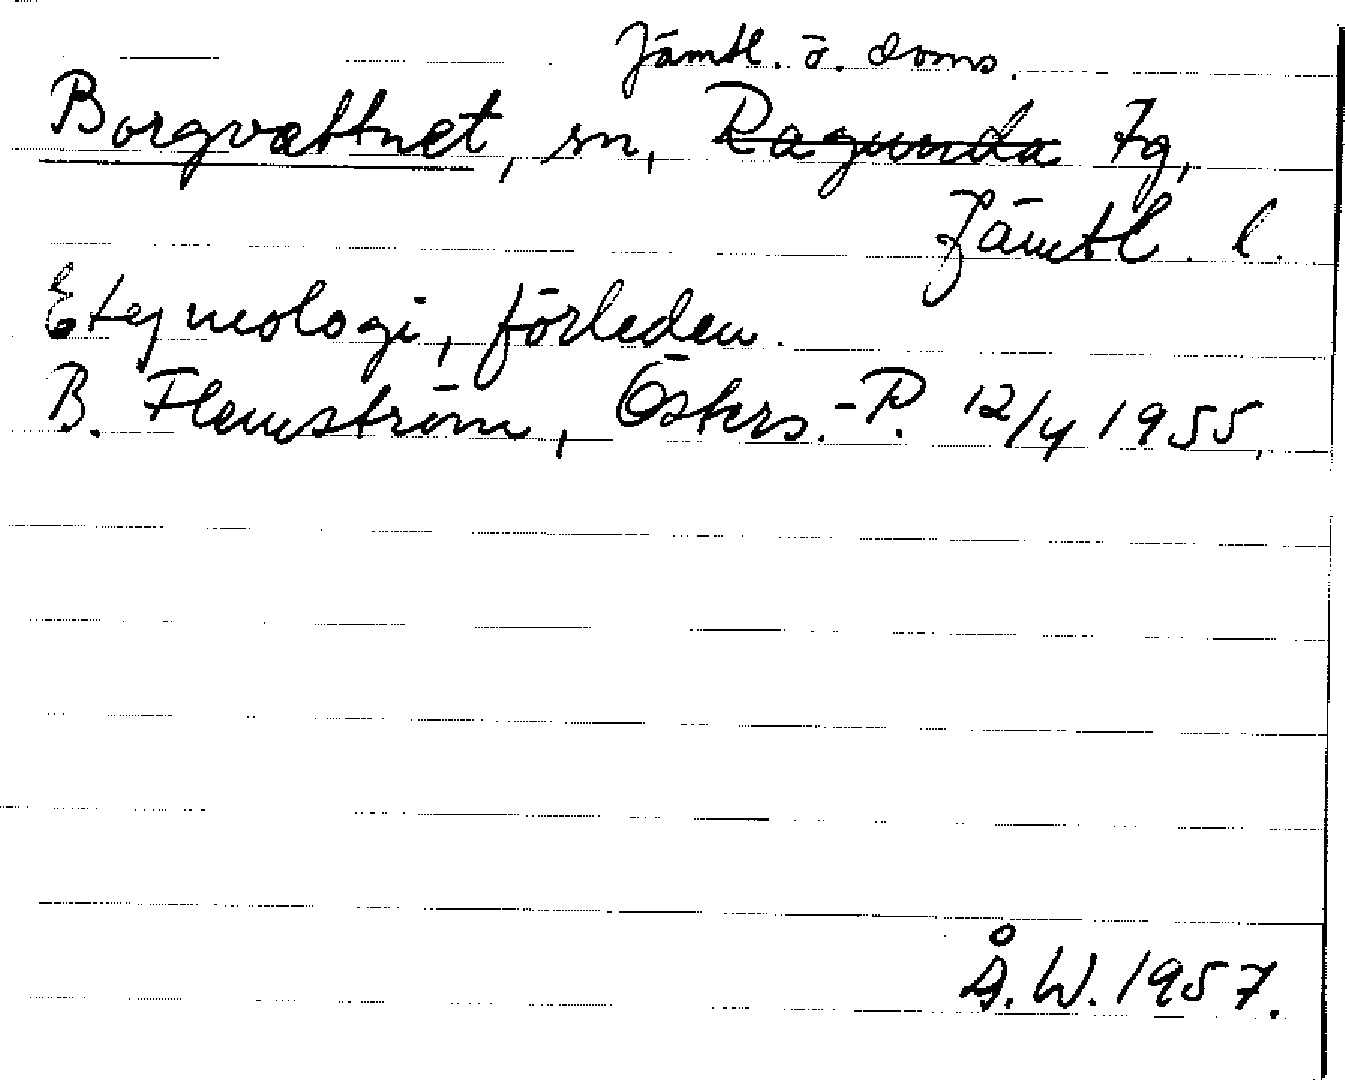 Jämtl. ö. doms.
Borgvattnet, sn, Ragunda Tg,
Jämtl. l.
Etymologi, förleden.
B. Flemström, Östers.-P. 12/4 1955,
Å.W. 1957.